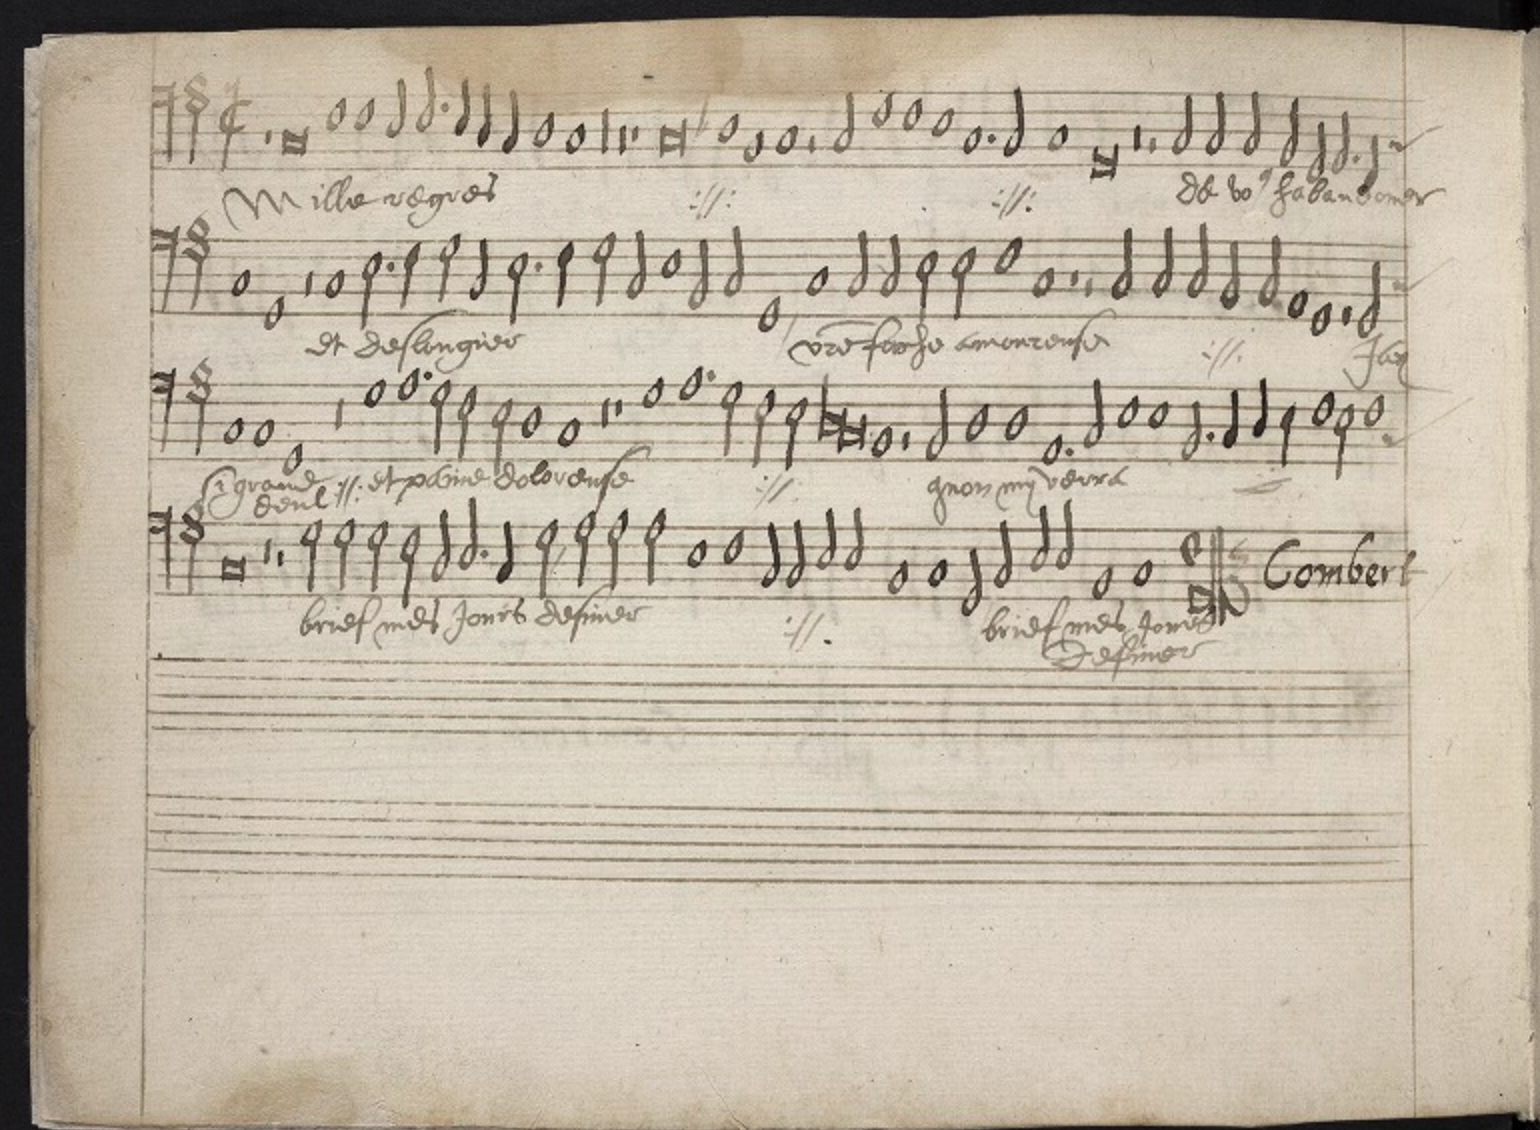 Mille regres :||: :||: de vo⁹ habandonner
et deslongier vre fache amoureuse :||: Jay
si grand deul :||: et paine doloreuse :||: quon my verra
brief mes Jours definer :||: brief mes Jours definer
Gombert